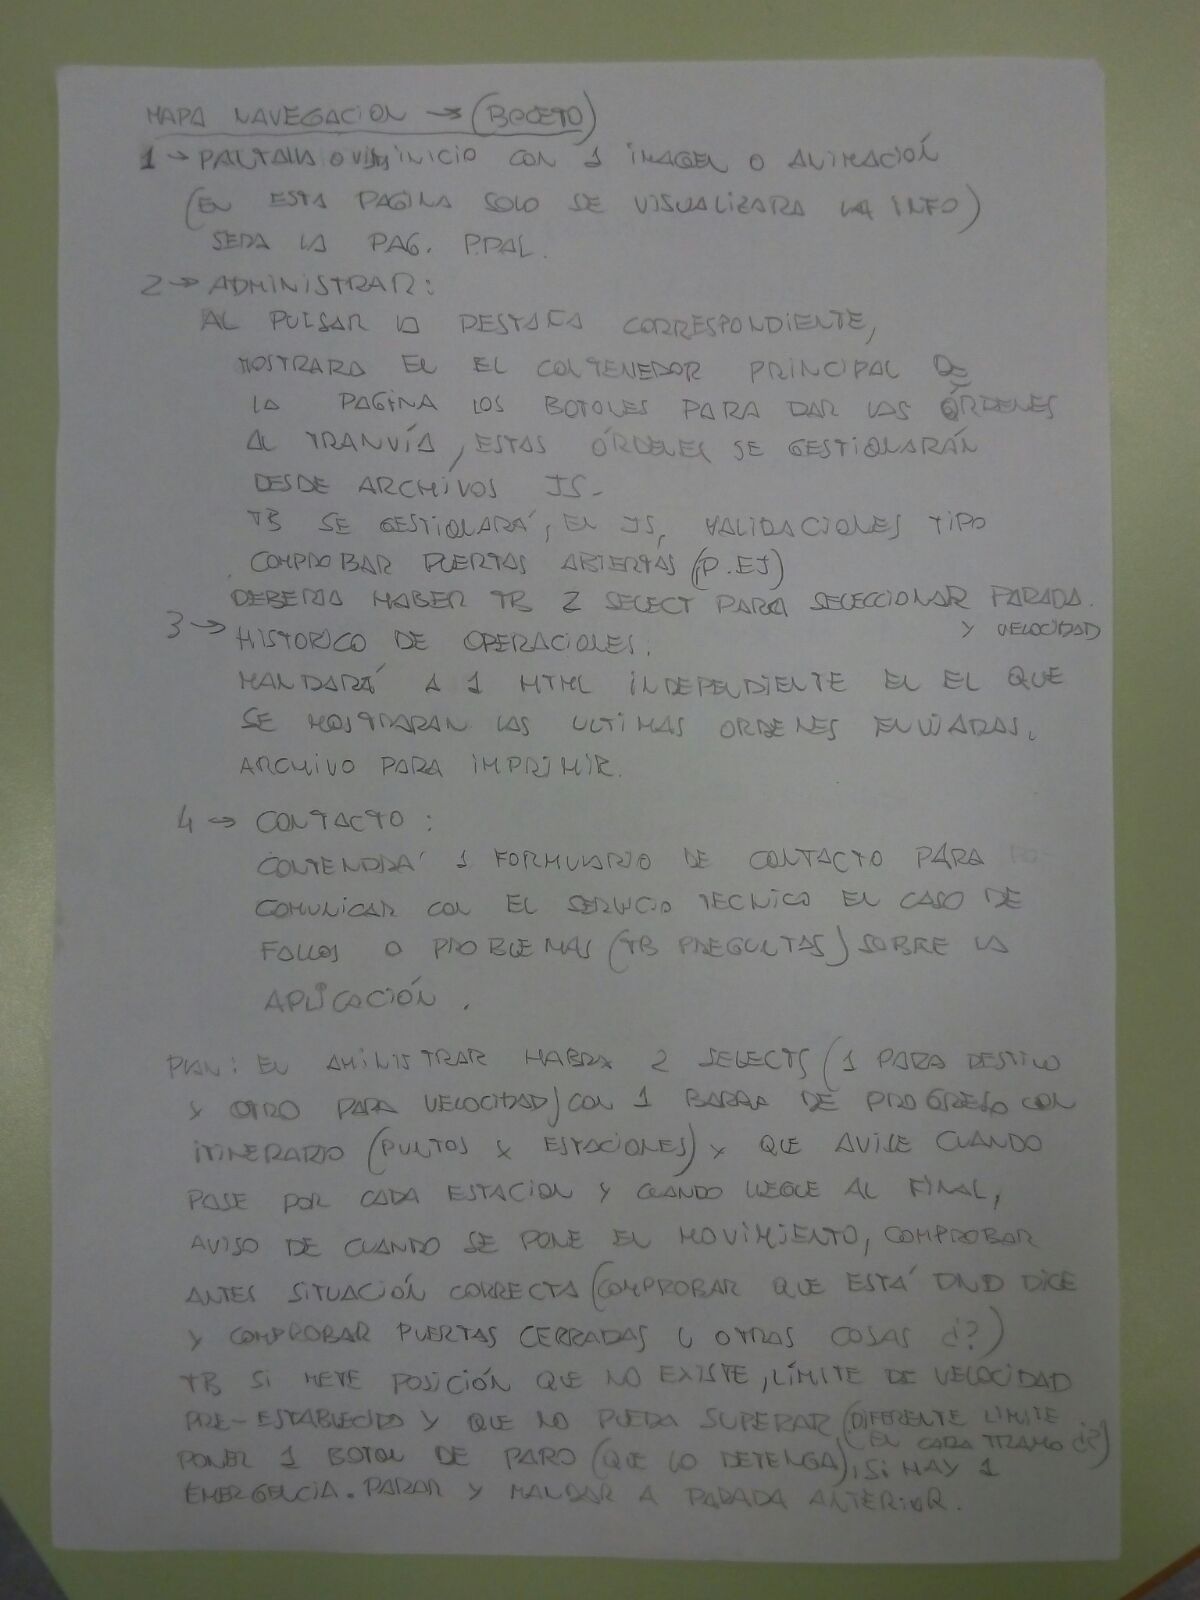 MAPA NAVEGACION → (BOCETO)
1 → PANTALLA O INICIO CON 1 IMAGEN O ANIMACIÓN
(EN ESTA PAGINA SOLO SE VISUALIZARA LA INFO)
SERA LA PAG. P.PAL.
2 → ADMINISTRAR:
AL PULSAR LA PESTAÑA CORRESPONDIENTE,
MOSTRARA EN EL CONTENEDOR PRINCIPAL DE
LA PAGINA LOS BOTONES PARA DAR LAS ÓRDENES
AL TRANVÍA, ESTAS ÓRDENES SE GESTIONARÁN
DESDE ARCHIVOS JS.
TB SE GESTIONARÁ, EN JS, VALIDACIONES TIPO
COMPROBAR PUERTAS ABIERTAS (P.EJ)
DEBERIA HABER TB 2 SELECT PARA SELECCIONAR PARADA.
Y VELOCIDAD
3 → HISTORICO DE OPERACIONES.
MANDARÁ A 1 HTML INDEPENDIENTE EN EL QUE
SE MOSTRARAN LAS ULTIMAS ORDENES ENVIADAS.
ARCHIVO PARA IMPRIMIR.
4 → CONTACTO:
CONTENDRÁ 1 FORMULARIO DE CONTACTO PARA
COMUNICAR CON EL SERVICIO TECNICO EN CASO DE
FALLOS O PROBLEMAS (TB PREGUNTAS) SOBRE LA
APLICACIÓN.
PLAN: EN AMINISTRAR HABRA 2 SELECTS (1 PARA DESTINO
Y OTRO PARA VELOCIDAD) CON 1 BARRA DE PROGRESO CON
ITINERARIO (PUNTOS X ESTACIONES) Y QUE AVISE CUANDO
PASE POR CADA ESTACION Y CUANDO LLEGUE AL FINAL,
AVISO DE CUANDO SE PONE EN MOVIMIENTO, COMPROBAR
ANTES SITUACIÓN CORRECTA (COMPROBAR QUE ESTÁ DND DICE
Y COMPROBAR PUERTAS CERRADAS U OTRAS COSAS ¿?)
TB SI METE POSICIÓN QUE NO EXISTE, LÍMITE DE VELOCIDAD
PRE-ESTABLECIDO Y QUE NO PUEDA SUPERAR (DIFERENTE LIMITE
EN CADA TRAMO ¿?)
PONER 1 BOTON DE PARO (QUE LO DETENGA), SI HAY 1
EMERGENCIA. PARAR Y MANDAR A PARADA ANTERIOR.